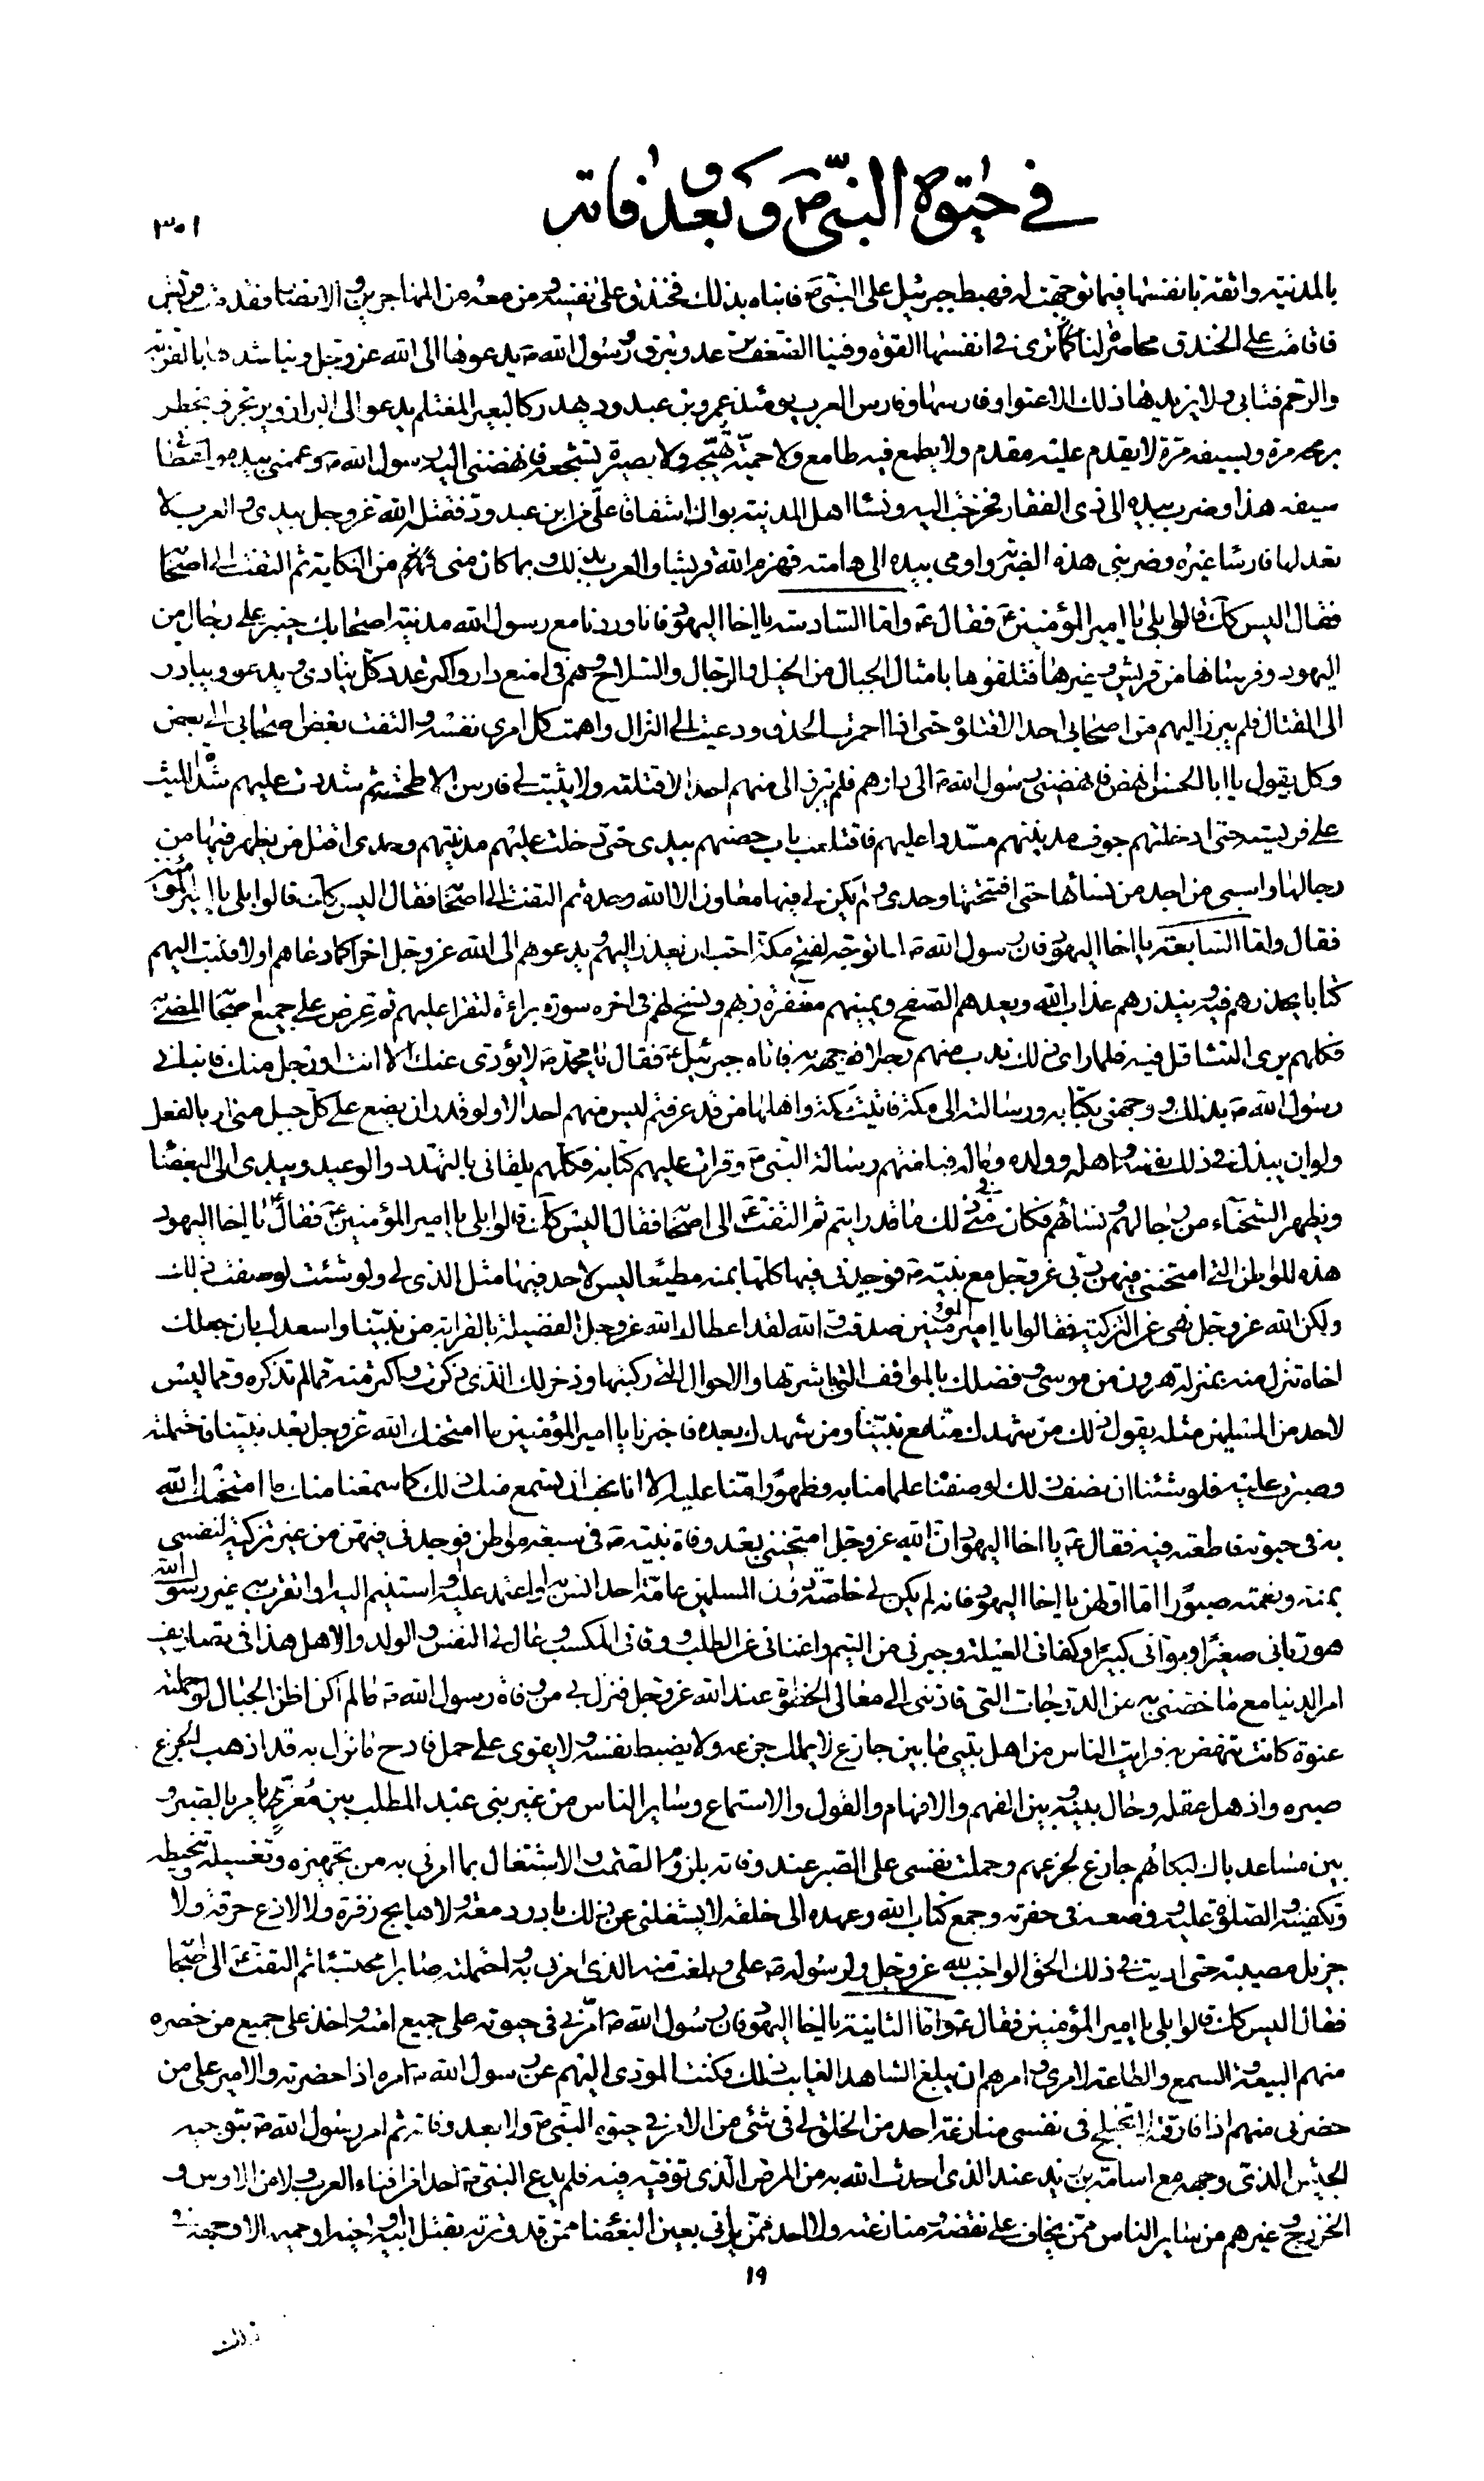 في حيوة النبي ص و بعد وفاته
٣٠١
بالمدينة واثقة بانفسها فيما توجهت له فهبط جبرئيل على النبي ص فانباه بذلك فخندق على نفسه ومن معه من المهاجرين والانصار فقدمت قريش
فاقامت على الخندق محاصرة لنا ترى في انفسها القوة وفينا الضعف ترعد وتبرق ورسول الله ص يدعوها الى الله عز وجل ويناشدها بالقرابة
والرحم فتابى ولا يزيدها ذلك الا عتوا وفارسها وفارس العرب يومئذ عمرو بن عبد ود يهدر كالبعير المغتلم يدعو الى البراز ويرتجز ويخطر
برمحه مرة وبسيفه مرة لا يقدم عليه مقدم ولا يطمع فيه طامع ولا حمية تهيجه ولا بصيرة تشجعه فانهضني اليه رسول الله ص وعممني بيده واعطاني
سيفه هذا وضرب بيده الى ذي الفقار فخرجت اليه ونساء اهل المدينة بواك اشفاقا علي من ابن عبد ود فقتله الله عز وجل بيدي والعرب لا
تعد لها فارسا غيره وضربني هذه الضربة واومى بيده الى هامته فهزم الله قريشا والعرب بذلك وبما كان مني فيهم من النكاية ثم التفت الى اصحابه
فقال اليس كذلك قالوا بلى يا امير المؤمنين فقال ع واما السادسة يا اخا اليهود فانا وردنا مع رسول الله مدينة اصحابك خيبر على رجال من
اليهود وفرسانها من قريش وغيرها فتلقونا بامثال الجبال من الخيل والرجال والسلاح وهم في امنع دار واكثر عدد كل ينادي ويدعو ويبادر
الى القتال فلم يبرز اليهم من اصحابي احد الا قتلوه حتى اذا احمرت الحدق ودعيت الى النزال واهمت كل امرئ نفسه والتفت بعض اصحابي الى بعض
وكل يقول يا ابا الحسن انهض فانهضني رسول الله ص الى دارهم فلم يبرز الي منهم احد الا قتلته ولا يثبت لي فارس الا طحنته ثم شددت عليهم شدة الليث
على فريسته حتى ادخلتهم جوف مدينتهم مسددا عليهم فاقتلعت باب حصنهم بيدي حتى دخلت عليهم مدينتهم وحدي اقتل من يظهر فيها من
رجالها واسبي من اجد من نسائها حتى افتتحتها وحدي ولم يكن لي فيها معاون الا الله وحده ثم التفت الى اصحابه فقال اليس كذلك قالوا بلى يا امير المؤمنين
فقال واما السابعة يا اخا اليهود فان رسول الله ص لما توجه لفتح مكة احب ان يعذر اليهم ويدعوهم الى الله عز وجل اخرا كما دعاهم اولا فكتب اليهم
كتابا يحذرهم فيه وينذرهم عذاب الله ويعدهم الصفح ويمنيهم مغفرة ربهم ونسخ لهم في اخره سورة براءة لتقرأ عليهم ثم عرض على جميع اصحابه المضي به
فكلهم يرى التثاقل فيه فلما راى ذلك ندب منهم رجلا فوجهه به فاتاه جبرئيل ع فقال يا محمد ص لا يؤدي عنك الا انت او رجل منك فانباني
رسول الله ص بذلك ووجهني بكتابه ورسالته الى مكة فاتيت مكة واهلها من قد عرفتم ليس منهم احد الا ولو قدر ان يضع على كل جبل مني اربا لفعل
ولو ان يبذل في ذلك نفسه واهله وولده وماله فبلغتهم رسالة النبي ص وقرات عليهم كتابه فكلهم يلقاني بالتهدد والوعيد ويبدي لي البغضاء
ويظهر الشحناء من رجالهم ونسائهم فكان مني في ذلك ما قد رايتم ثم التفت ع الى اصحابه فقال اليس كذلك قالوا بلى يا امير المؤمنين ع فقال ع يا اخا اليهود
هذه المواطن التي امتحنني فيهن ربي عز وجل مع نبيه ص فوجدني فيها كلها بمنه مطيعا ليس لاحد فيها مثل الذي لي ولو شئت لوصفت ذلك
ولكن الله عز وجل نهى عن التزكية فقالوا يا امير المؤمنين صدقت والله لقد اعطاك الله عز وجل الفضيلة بالقرابة من نبينا واسعدك بان جعلك
اخاه تنزل منه بمنزلة هرون من موسى وفضلك بالمواقف التي باشرتها والاهوال التي ركبتها وذخر لك الذي ذكرت واكثر منه مما لم تذكره ومما ليس
لاحد من المسلمين مثله يقول ذلك من شهدك منا مع نبينا ومن شهدك بعده فاخبرنا يا امير المؤمنين ما امتحنك الله عز وجل بعد نبينا فاحتملته
وصبرت عليه فلو شئنا ان نصف ذلك لوصفناه علما منا به وظهورا منا عليه الا انا نحب ان نسمع منك ذلك كما سمعنا منك ما امتحنك الله
به في حيوته فاطعته فيه فقال ع يا اخا اليهود ان الله عز وجل امتحنني بعد وفاة نبيه ص في سبعة مواطن فوجدني فيهن من غير تزكية لنفسي
بمنه ونعمته صبورا اما اولهن يا اخا اليهود فانه لم يكن لي خاصة دون المسلمين عامة احد انس به او اعتمد عليه او استنيم اليه او اتقرب به غير رسول الله
هو رباني صغيرا وبوأني كبيرا وكفاني العيلة وجبرني من اليتم واغناني عن الطلب ووقاني المكسب وعال لي النفس والولد والاهل هذا في تصاريف
امر الدنيا مع ما خصني به من الدرجات التي قادتني الى معالي الحظوة عند الله عز وجل فنزل بي من وفاة رسول الله ص ما لم اكن اظن الجبال لو حملته
عنوة كانت تنهض به فرايت الناس من اهل بيتي ما بين جازع لا يملك جزعه ولا يضبط نفسه ولا يقوى على حمل فادح ما نزل به قد اذهب الجزع
صبره واذهل عقله وحال بينه وبين الفهم والافهام والقول والاستماع وساير الناس من غير بني عبد المطلب بين معز يامر بالصبر و
بين مساعد باك لبكائهم جازع لجزعهم وحملت نفسي على الصبر عند وفاته بلزوم الصمت والاشتغال بما امرني به من تجهيزه وتغسيله وتحنيطه
وتكفينه والصلوة عليه ووضعه في حفرته وجمع كتاب الله وعهده الى خلقه لا يشغلني عن ذلك بادر دمعة ولا هايج زفرة ولا لاذع حرقة ولا
جزيل مصيبة حتى اديت في ذلك الحق الواجب لله عز وجل ولرسوله ص علي وبلغت منه الذي امرني به واحتملته صابرا محتسبا ثم التفت ع الى اصحابه
فقال اليس كذلك قالوا بلى يا امير المؤمنين فقال ع واما الثانية يا اخا اليهود فان رسول الله ص امرني في حيوته على جميع امته واخذ على جميع من حضره
منهم البيعة والسمع والطاعة لامري وامرهم ان يبلغ الشاهد الغايب ذلك فكنت المؤدي اليهم عن رسول الله ص امره اذا حضرته والامير على من
حضرني منهم اذا فارقته لا تختلج في نفسي منازعة احد من الخلق لي في شئ من الامر في حيوة النبي ص ولا بعد وفاته ثم امر رسول الله ص بتوجيه
الجيش الذي وجهه مع اسامة بن زيد عند الذي احدث الله به من المرض الذي توفيه فيه فلم يدع النبي ص احدا من افناء العرب ولا من الاوس و
الخزرج وغيرهم من ساير الناس ممن يخاف على نقضه ومنازعته ولا احدا ممن يراني بعين البغضاء ممن قد وترته بقتل ابيه او اخيه او حميمه الا وجهه
١٩